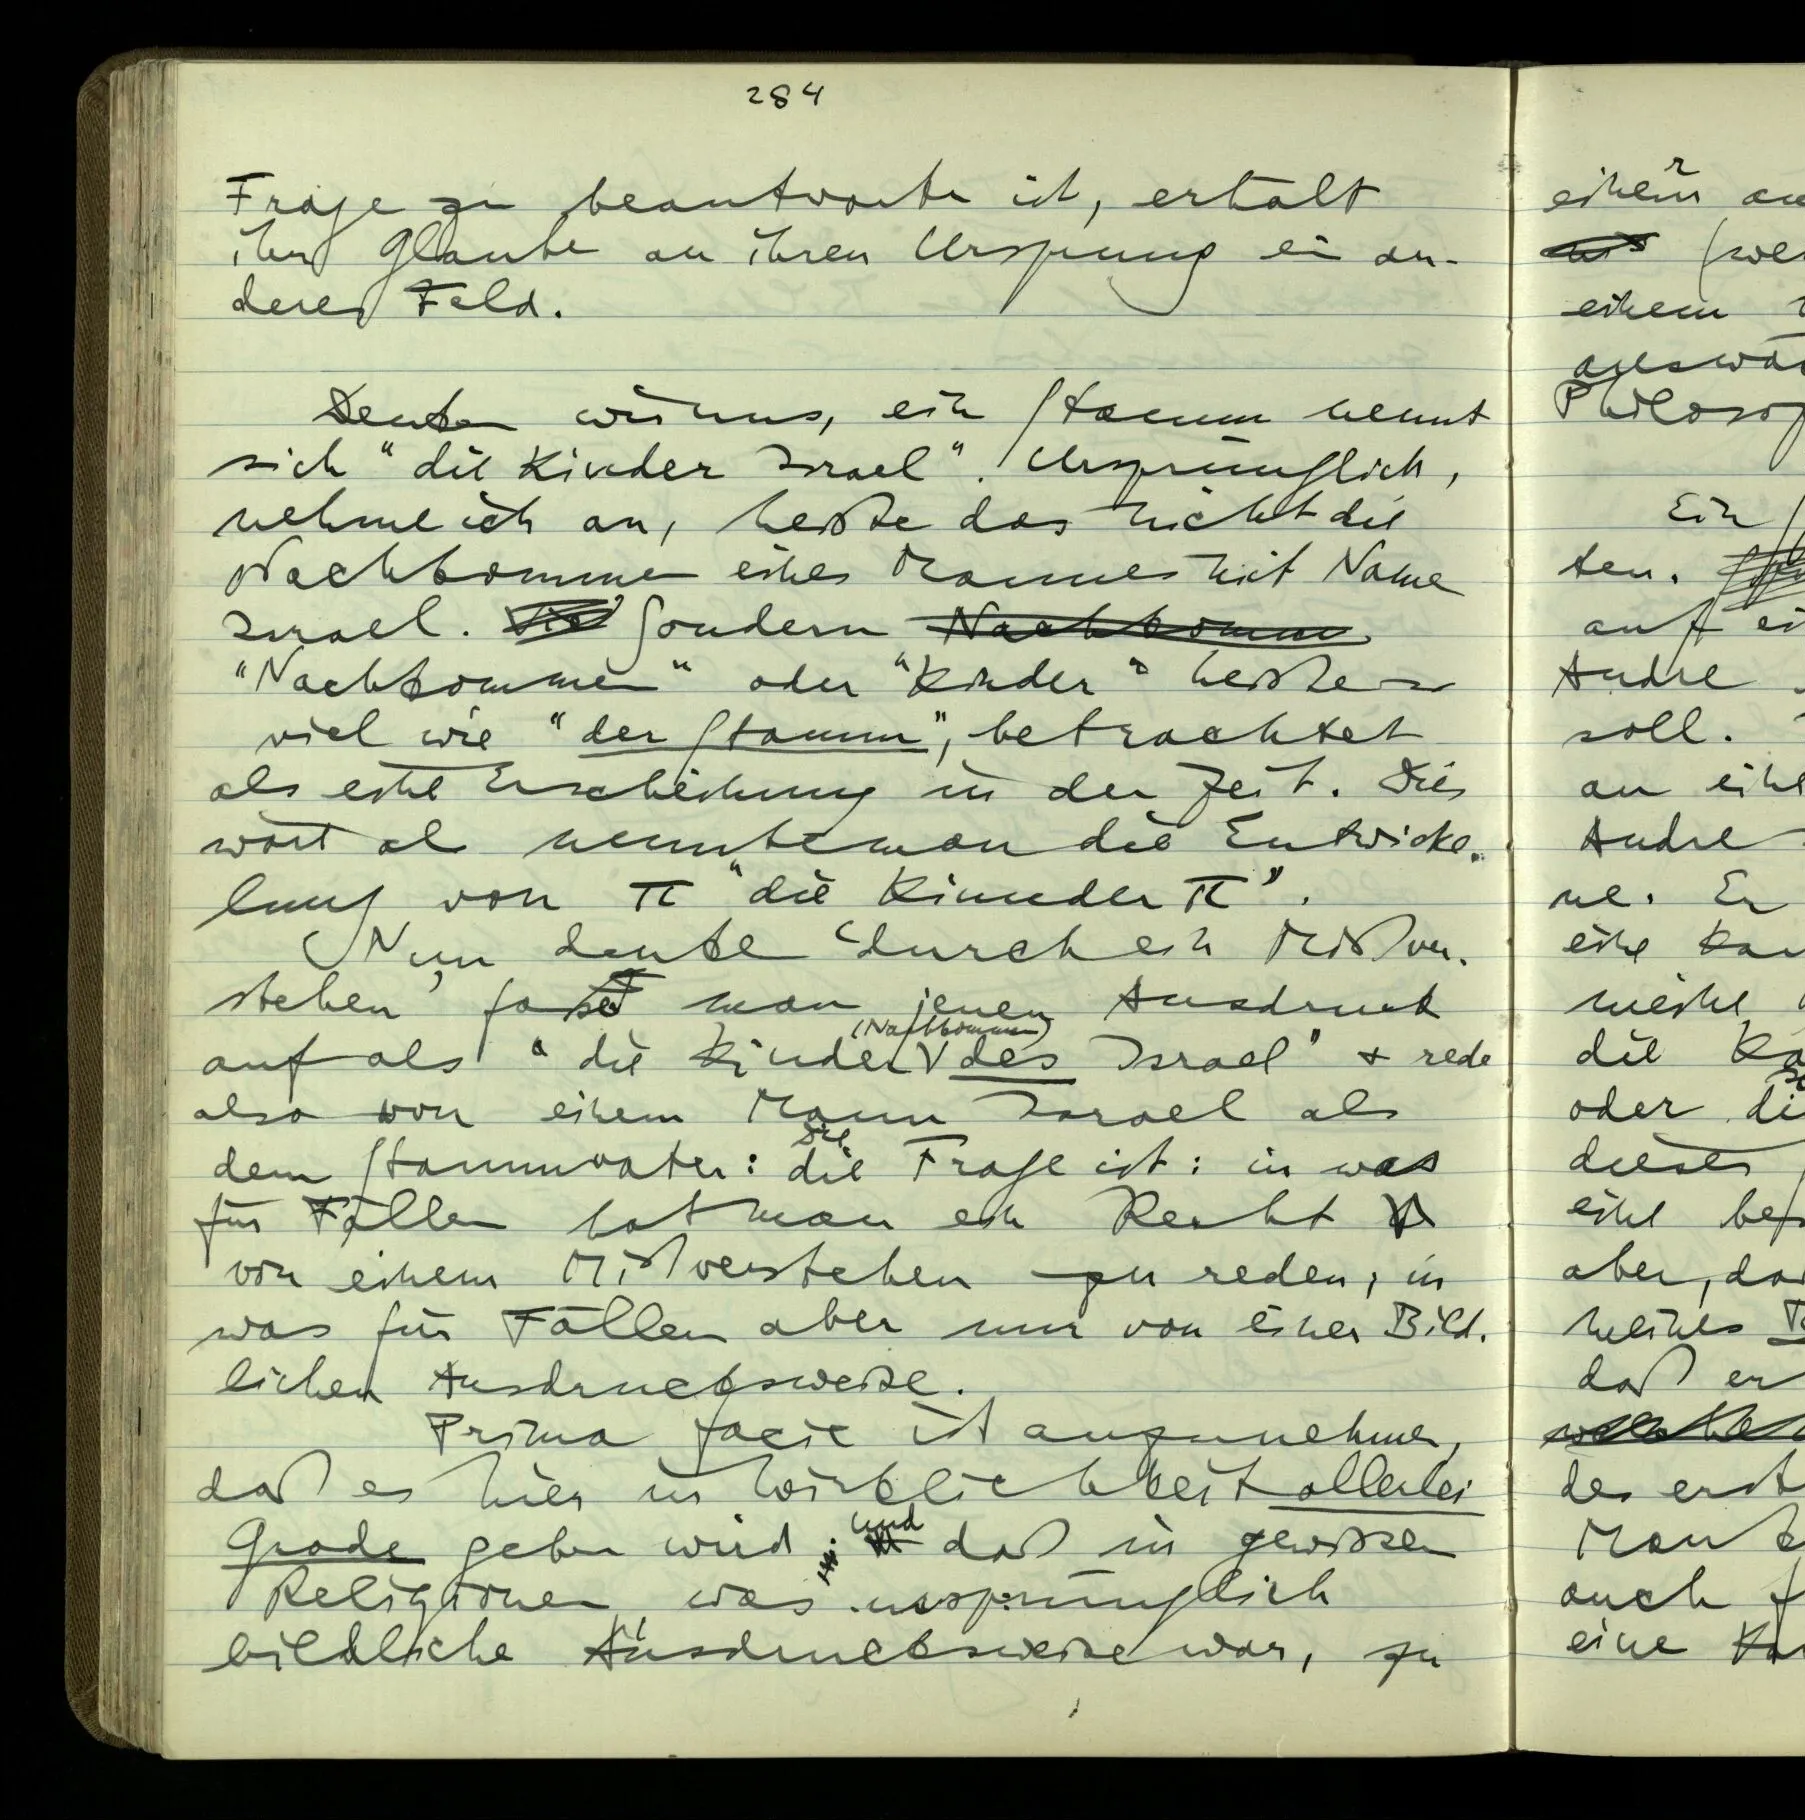 284
Frage zu beantworten ist, erhält
ihr Glaube an ihren Ursprung ein an-
deres Feld.
Denken wir uns, ein Stamm nennt
sich "die Kinder Israel". Ursprünglich,
nehme ich an, heiße das nicht die
Nachkommen eines Mannes mit Name
Israel. Sondern Nachkommen
"Nachkommen" oder "Kinder" heiße so
viel wie "der Stamm", betrachtet
als eine Erscheinung in der Zeit. Dies
wär als nennte man die Entwicke-
lung von π "die Kinder π".
Nun denke 'durch ein Mißver-
stehen' faßt man jenen Ausdruck
(Nachkommen)
auf als "die Kinder des Israel" & rede
also von einem Mann Israel als
dem Stammvater: die Frage ist: in was
für Fällen hat man ein Recht
von einem Mißverstehen zu reden; in
was für Fällen aber nur von einer Bild-
lichen Ausdrucksweise.
Prima facie ist anzunehmen,
daß es hier in Wirklichkeit allerlei
Grade geben wird. und daß in gewissen
Religionen was ursprünglich
bildliche Ausdrucksweise war, zu
einem
einem
Philosop
Ein
ten.
auf
Andre
soll.
an
Andre
ne. Er
eine
meine
die
oder
dieses
eine
aber,
meines
daß er
des
auch
eine